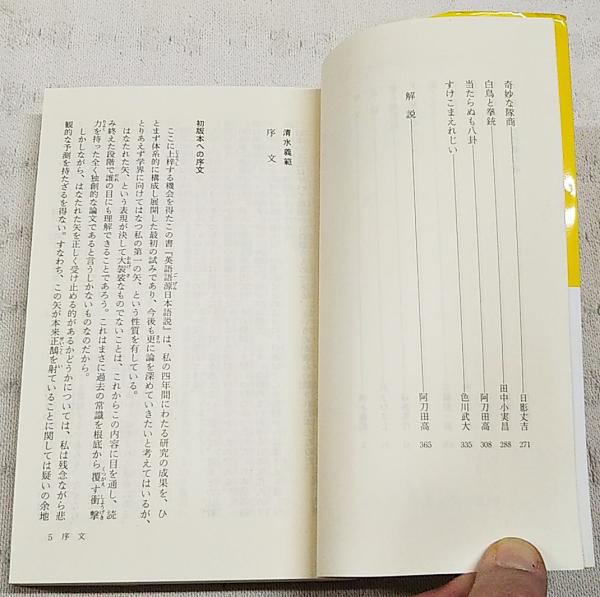 奇妙な隊商 日影丈吉 271
白鳥と拳銃 田中小実昌 288
当たらぬも八卦 阿刀田高 308
すけこまえれじい 色川武大 335
解説 阿刀田高 365
清水義範
序文
初版本への序文
ここに上梓する機会を得たこの書『英語語源日本語説』は、私の四年間にわたる研究の成果を、ひ
とまず体系的に構成し展開した最初の試みであり、今後も更に論を深めていきたいと考えてはいるが、
とりあえず学界に向けてはなつ私の第一の矢、という性質を有している。
はなたれた矢、という表現が決して大袈裟なものでないことは、これからこの内容に目を通し、読
み終えた段階で誰の目にも理解できることであろう。これはまさに過去の常識を根底から覆す衝撃
力を持った全く独創的な論文であると言うしかないものなのだから。
しかしながら、はなたれた矢を正しく受け止める的があるかどうかについては、私は残念ながら悲
観的な予測を持たざるを得ない。すなわち、この矢が本来正鵠を射ていることに関しては疑いの余地
5 序文